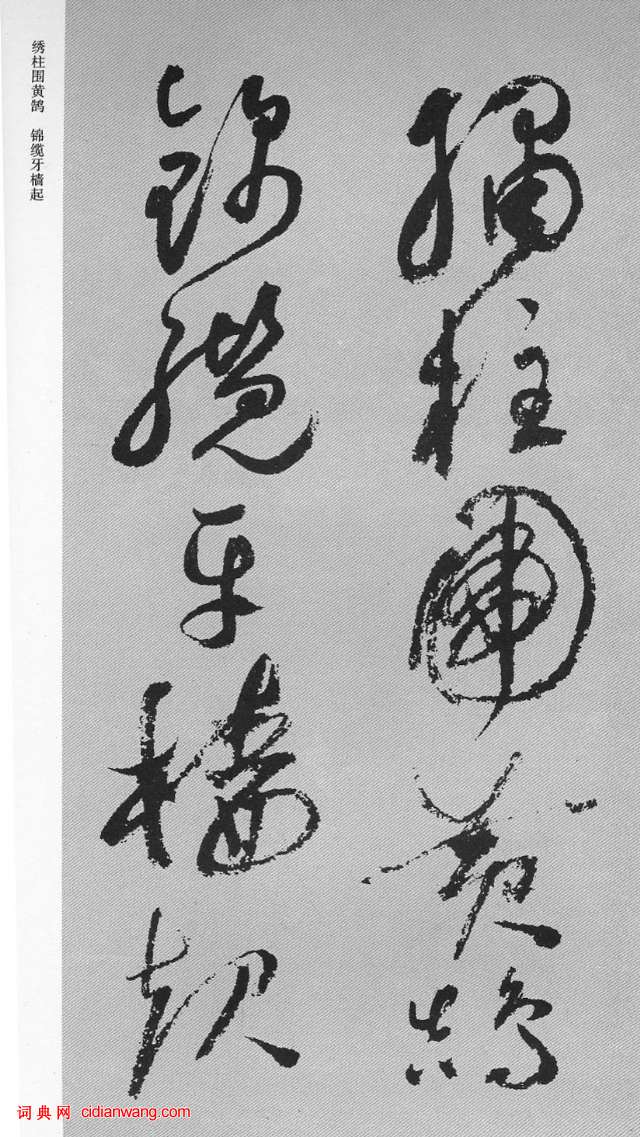 繡柱圍黃鵠
錦纜牙檣起
绣柱围黄鹄 锦缆牙樯起
词典网 cidianwang.com